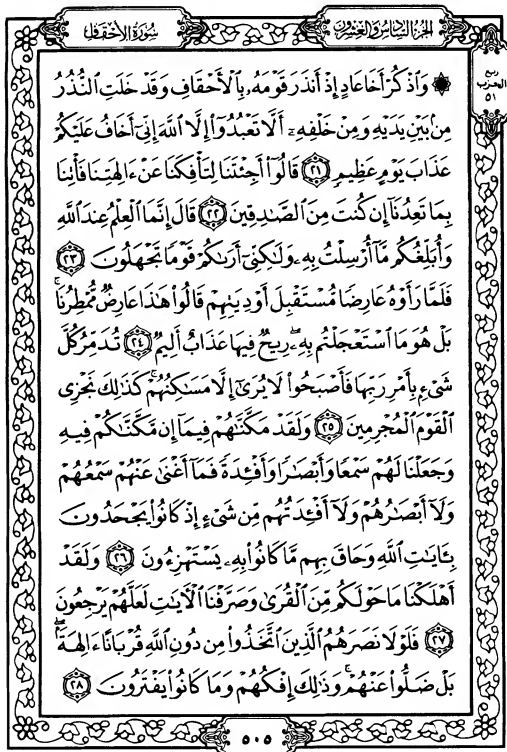 الجزء السادس والعشرون
سورة الأحقاف
ربع
الحزب
٥١
۞ وَاذْكُرْ أَخَا عَادٍ إِذْ أَنذَرَ قَوْمَهُۥ بِالْأَحْقَافِ وَقَدْ خَلَتِ النُّذُرُ
مِنۢ بَيْنِ يَدَيْهِ وَمِنْ خَلْفِهِۦٓ أَلَّا تَعْبُدُوٓا۟ إِلَّا اللَّهَ إِنِّىٓ أَخَافُ عَلَيْكُمْ
عَذَابَ يَوْمٍ عَظِيمٍ ﴿٢١﴾ قَالُوٓا۟ أَجِئْتَنَا لِتَأْفِكَنَا عَنْ ءَالِهَتِنَا فَأْتِنَا
بِمَا تَعِدُنَآ إِن كُنتَ مِنَ الصَّٰدِقِينَ ﴿٢٢﴾ قَالَ إِنَّمَا الْعِلْمُ عِندَ اللَّهِ
وَأُبَلِّغُكُم مَّآ أُرْسِلْتُ بِهِۦ وَلَٰكِنِّىٓ أَرَىٰكُمْ قَوْمًا تَجْهَلُونَ ﴿٢٣﴾
فَلَمَّا رَأَوْهُ عَارِضًا مُّسْتَقْبِلَ أَوْدِيَتِهِمْ قَالُوا۟ هَٰذَا عَارِضٌ مُّمْطِرُنَا ۚ
بَلْ هُوَ مَا اسْتَعْجَلْتُم بِهِۦ ۖ رِيحٌ فِيهَا عَذَابٌ أَلِيمٌ ﴿٢٤﴾ تُدَمِّرُ كُلَّ
شَىْءٍۭ بِأَمْرِ رَبِّهَا فَأَصْبَحُوا۟ لَا يُرَىٰٓ إِلَّا مَسَٰكِنُهُمْ ۚ كَذَٰلِكَ نَجْزِى
الْقَوْمَ الْمُجْرِمِينَ ﴿٢٥﴾ وَلَقَدْ مَكَّنَّٰهُمْ فِيمَآ إِن مَّكَّنَّٰكُمْ فِيهِ
وَجَعَلْنَا لَهُمْ سَمْعًا وَأَبْصَٰرًا وَأَفْـِٔدَةً فَمَآ أَغْنَىٰ عَنْهُمْ سَمْعُهُمْ
وَلَآ أَبْصَٰرُهُمْ وَلَآ أَفْـِٔدَتُهُم مِّن شَىْءٍ إِذْ كَانُوا۟ يَجْحَدُونَ
بِـَٔايَٰتِ اللَّهِ وَحَاقَ بِهِم مَّا كَانُوا۟ بِهِۦ يَسْتَهْزِءُونَ ﴿٢٦﴾ وَلَقَدْ
أَهْلَكْنَا مَا حَوْلَكُم مِّنَ الْقُرَىٰ وَصَرَّفْنَا الْءَايَٰتِ لَعَلَّهُمْ يَرْجِعُونَ
﴿٢٧﴾ فَلَوْلَا نَصَرَهُمُ الَّذِينَ اتَّخَذُوا۟ مِن دُونِ اللَّهِ قُرْبَانًا ءَالِهَةًۢ ۖ
بَلْ ضَلُّوا۟ عَنْهُمْ ۚ وَذَٰلِكَ إِفْكُهُمْ وَمَا كَانُوا۟ يَفْتَرُونَ ﴿٢٨﴾
٥٠٥